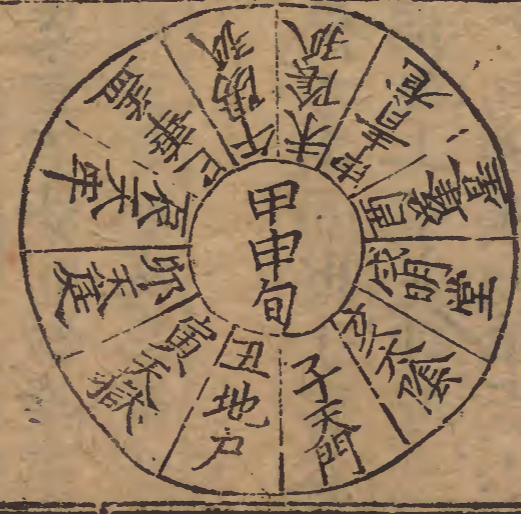 甲申旬
子天門
丑地户
寅天獄
卯天庭
辰天牢
巳華蓋
午陽孤
未陰孤
申青龍
酉蓬星
戌明堂
亥太陰